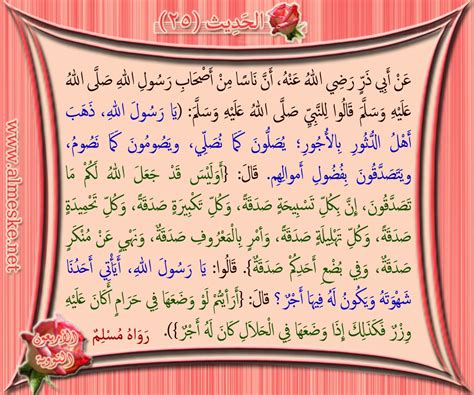 الحَدِيث (٢٥).
عَنْ أَبِي ذَرٍّ رَضِيَ اللهُ عَنْهُ، أَنَّ نَاسًا مِنْ أَصْحَابِ رَسُولِ اللهِ صَلَّى اللهُ
عَلَيْهِ وَسَلَّمَ قَالُوا لِلنَّبِيِّ صَلَّى اللهُ عَلَيْهِ وَسَلَّمَ: (يَا رَسُولَ اللهِ، ذَهَبَ
أَهْلُ الدُّثُورِ بِالأُجُورِ؛ يُصَلُّونَ كَمَا نُصَلِّي، وَيَصُومُونَ كَمَا نَصُومُ،
وَيَتَصَدَّقُونَ بِفُضُولِ أَموالِهِم. قَالَ: {أَوَلَيْسَ قَدْ جَعَلَ اللهُ لَكُمْ مَا
تَصَدَّقُونَ، إِنَّ بِكُلِّ تَسْبِيحَةٍ صَدَقَةً، وَكُلِّ تَكْبِيرَةٍ صَدَقَةً، وَكُلِّ تَحْمِيدَةٍ
صَدَقَةً، وَكُلِّ تَهْلِيلَةٍ صَدَقَةً، وَأَمْرٍ بِالْمَعْرُوفِ صَدَقَةً، وَنَهْيٍ عَنْ مُنْكَرٍ
صَدَقَةً، وَفِي بُضْعِ أَحَدِكُمْ صَدَقَةٌ}. قَالُوا: يَا رَسُولَ اللهِ، أَيَأْتِي أَحَدُنَا
شَهْوَتَهُ وَيَكُونُ لَهُ فِيهَا أَجْرٌ؟ قالَ: {أَرَأَيْتُمْ لَوْ وَضَعَهَا فِي حَرَامٍ أَكَانَ عَلَيْهِ
وِزْرٌ فَكَذَلِكَ إِذَا وَضَعَهَا فِي الْحَلَالِ كَانَ لَهُ أَجْرٌ}). رَوَاهُ مُسْلِمٌ
الأربعون
النووية
www.almeske.net